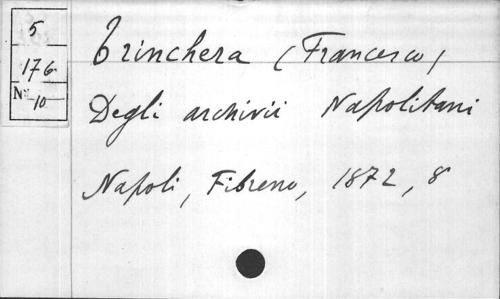 5
176.
N.° 10
Trinchera (Francesco)
Degli archivii Napolitani
Napoli, Fibreno, 1872, 8